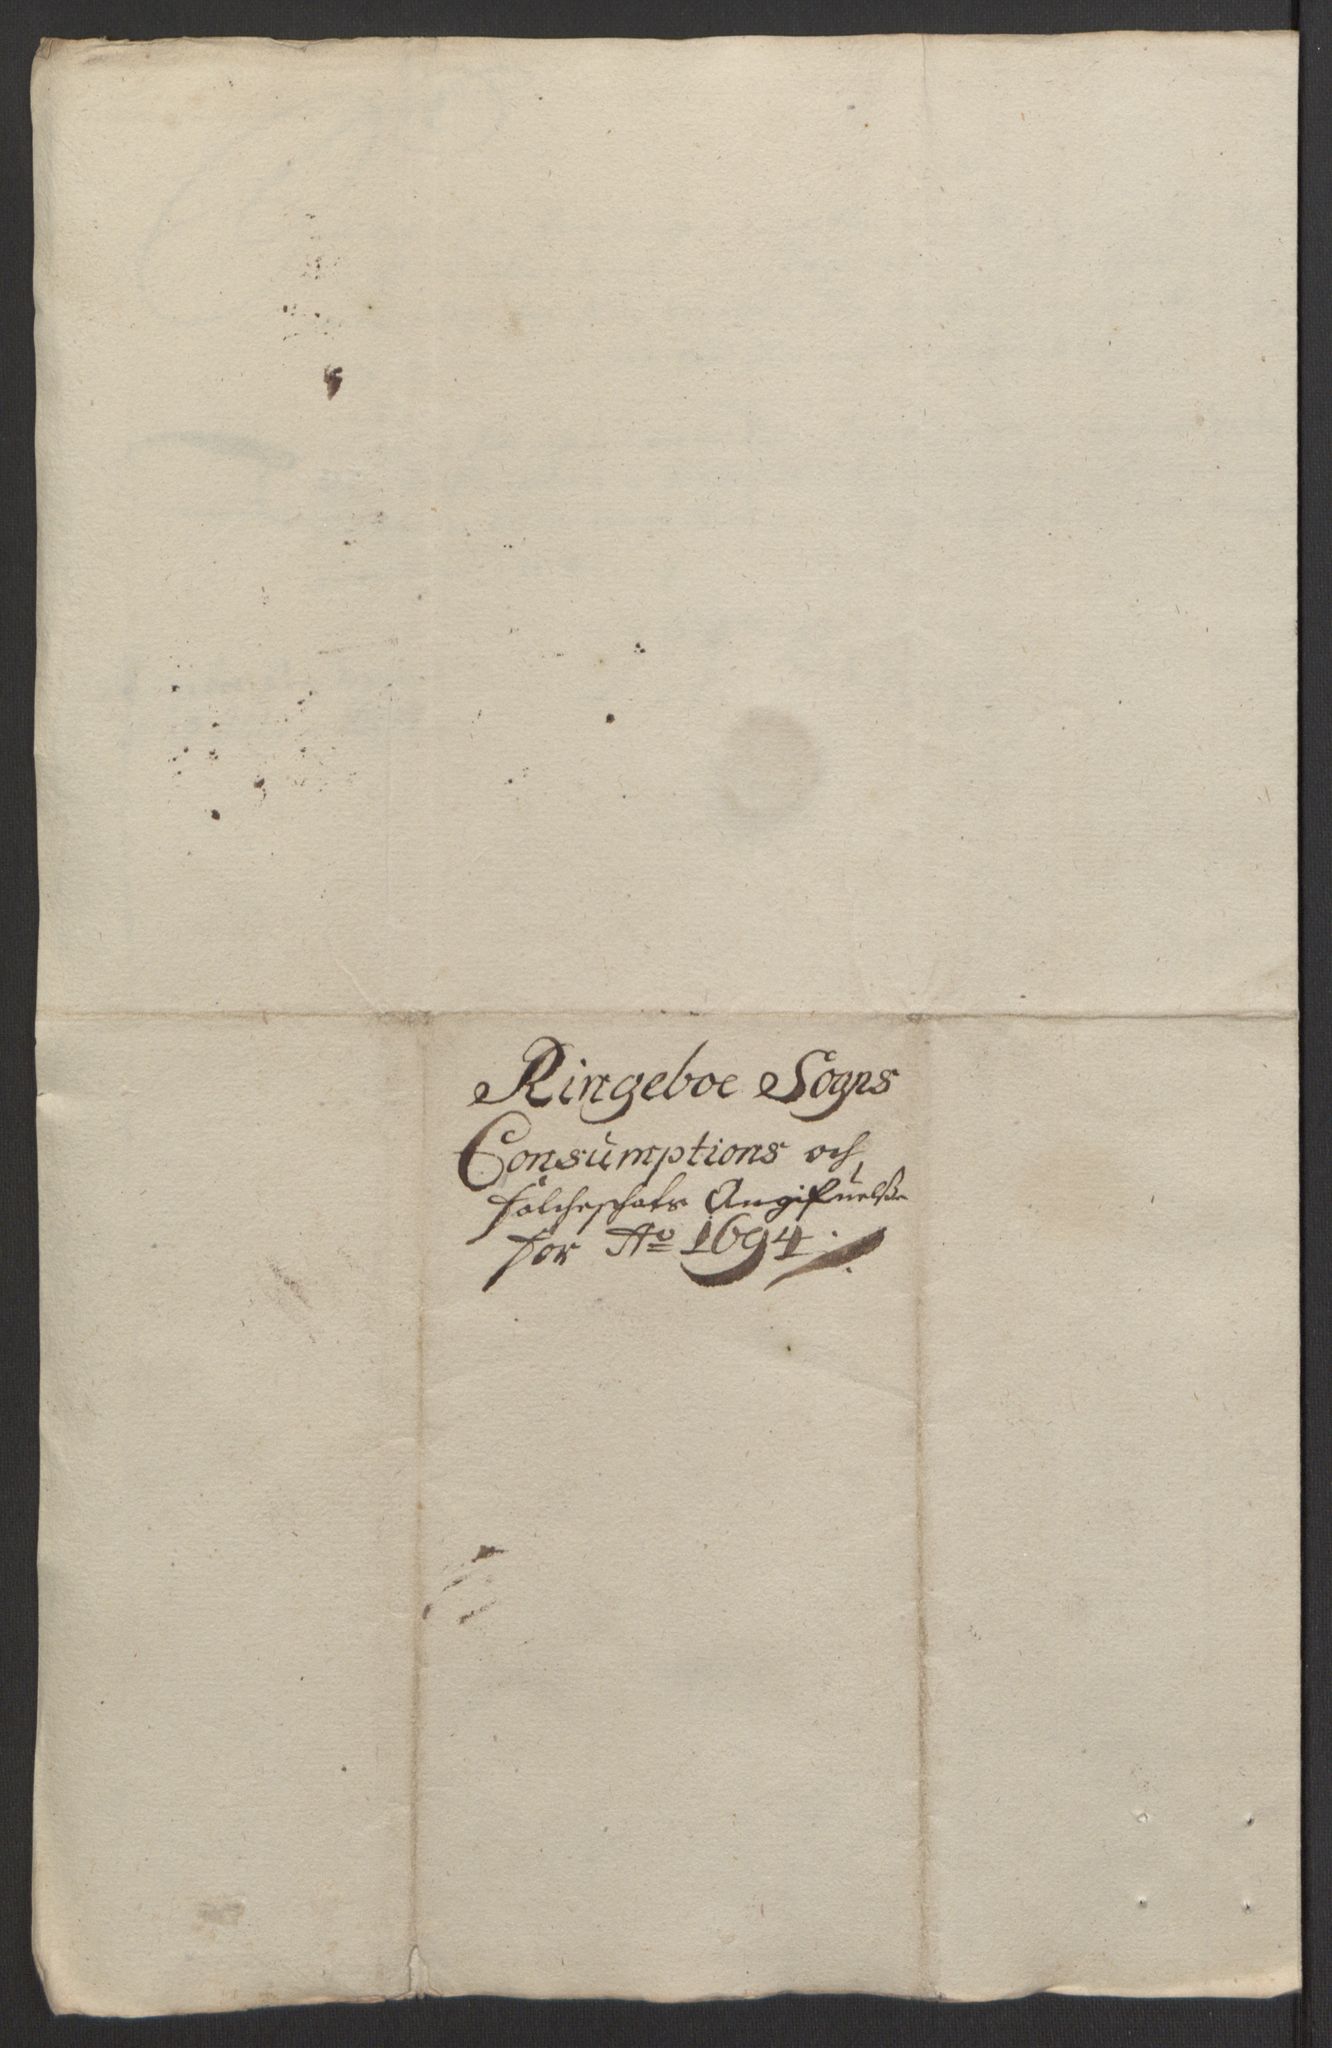 Ringeboe Sogns
Consumptions och
folcheschats Angifuelße
for Ao 1694